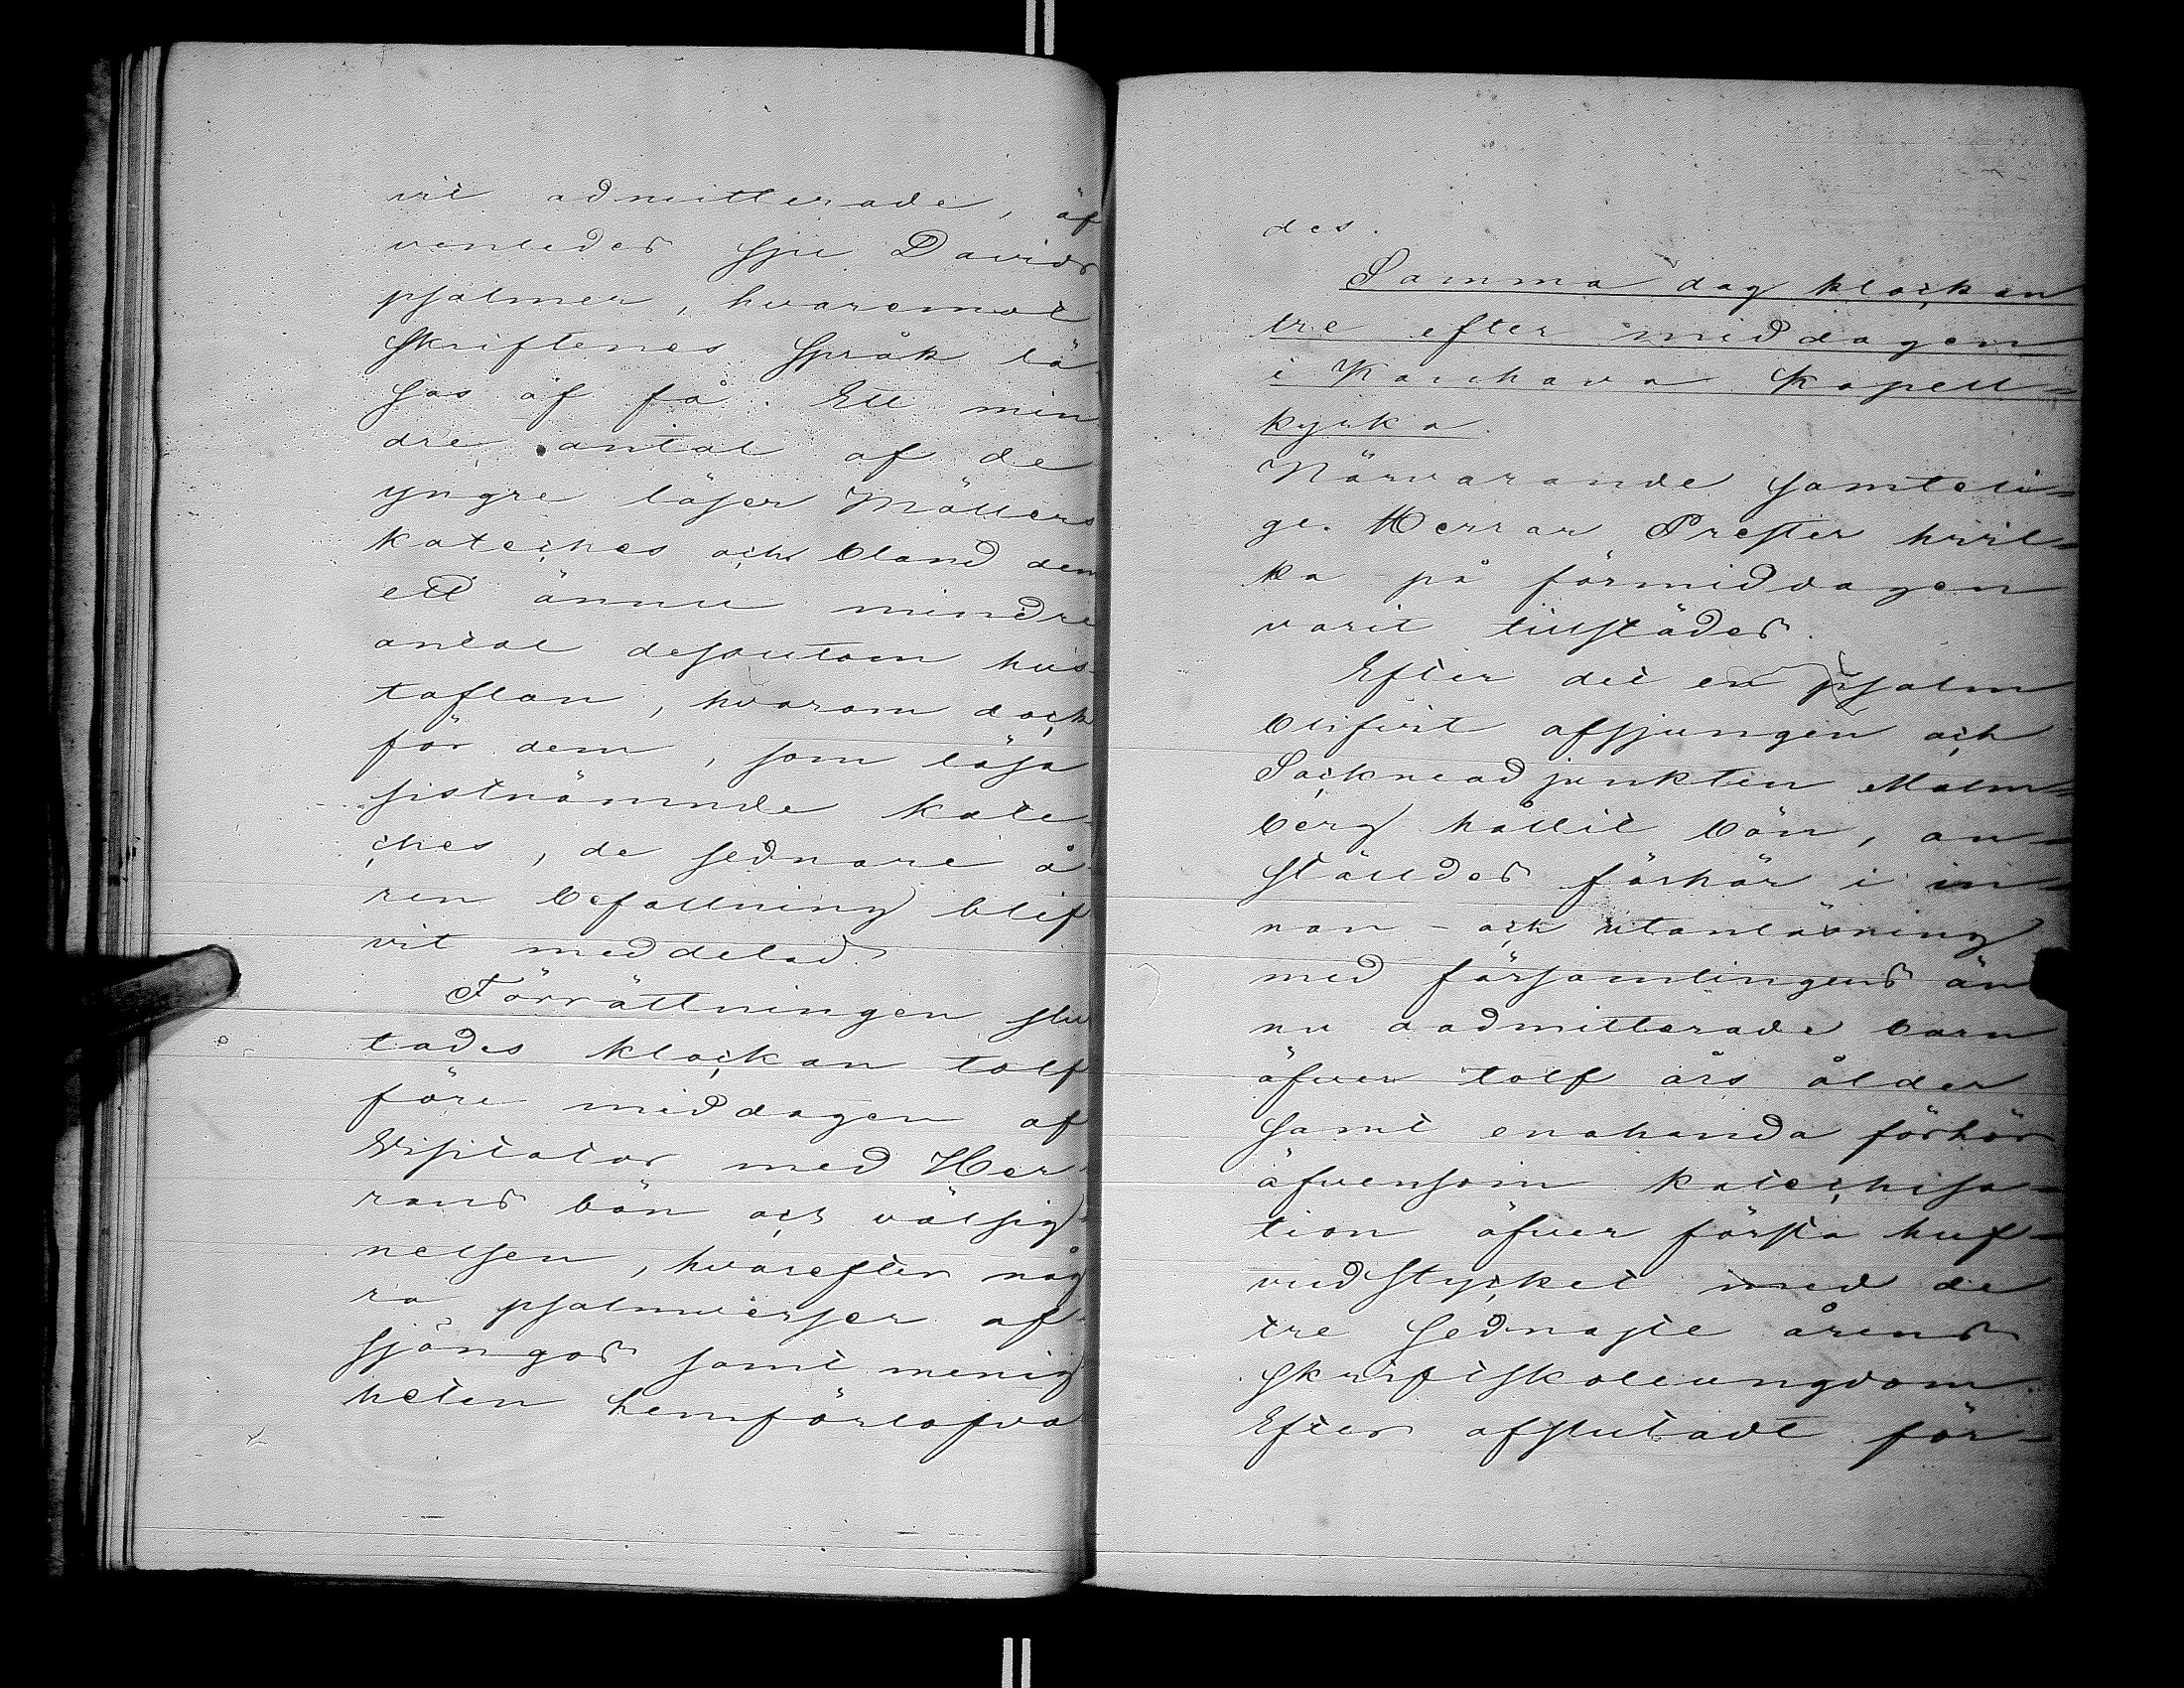 vit admitterade, äf
venledes sju Davids
psalmer, hvaremot
skriftenes språk lä
sas af få. Ett min
dre antal af de
yngre läser Möllers
kateches och bland dem
ett ännu mindre
antal desoutom hus
taflan, hvarom dock
för dem, som läsa
sistnämnde kate-
ches, de sednare å
ren befallning blif
vit meddelad.
Förrättningen slu
tades klockan tolf
före middagen af
Visitator med Her-
rans bön och välsig-
nelsen, hvarefter någ
ra psalmverser af-
sjöngos samt menig
heten hemförlofva
des.
Samma dag klockan
tre efter middagen
i Kapell-
kyrka.
Närvarande samteli-
ge Herrar Prester hvil-
ka på förmiddagen
varit tillstädes.
Efter det en psalm
blifvit afsjungen och
Sockneadjunkten Malm-
berg hållit bön, an-
ställdes förhör i in-
nan- och utanläsning
med församlingens än
nu oadmitterade barn
öfver tolf års ålder
samt enahanda förhör
äfvensom katechisa-
tion öfver första huf-
vudstycket med de
tre sednaste årens
skriftskoleungdom.
Efter afslutadt för-